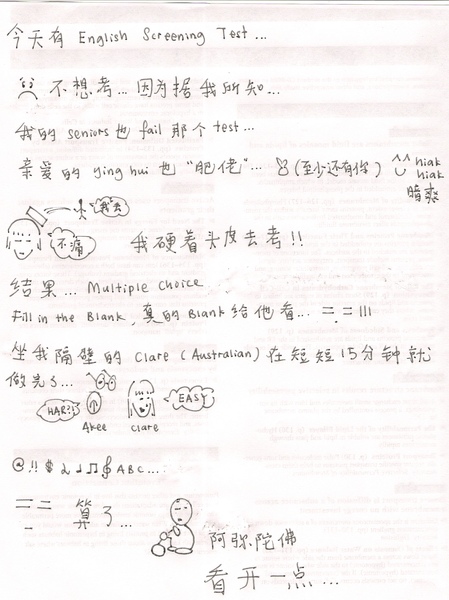 今天有 English Screening Test...
不想考... 因为据我所知...
我的 seniors 也 fail 那个 test...
亲爱的 ying hui 也 "肥佬"... (至少还有你) ^^ hiak hiak 暗爽
我去
不痛
我硬着头皮去考!!
结果... Multiple Choice
Fill in the Blank, 真的 Blank 给他看... =.=|||
坐我隔壁的 Clare (Australian) 在短短15分钟就
做完了...
HAR?! EASY
Akee Clare
@.!! $ ♩♫𝄞 ABC...
算了...
阿弥陀佛
看开一点...